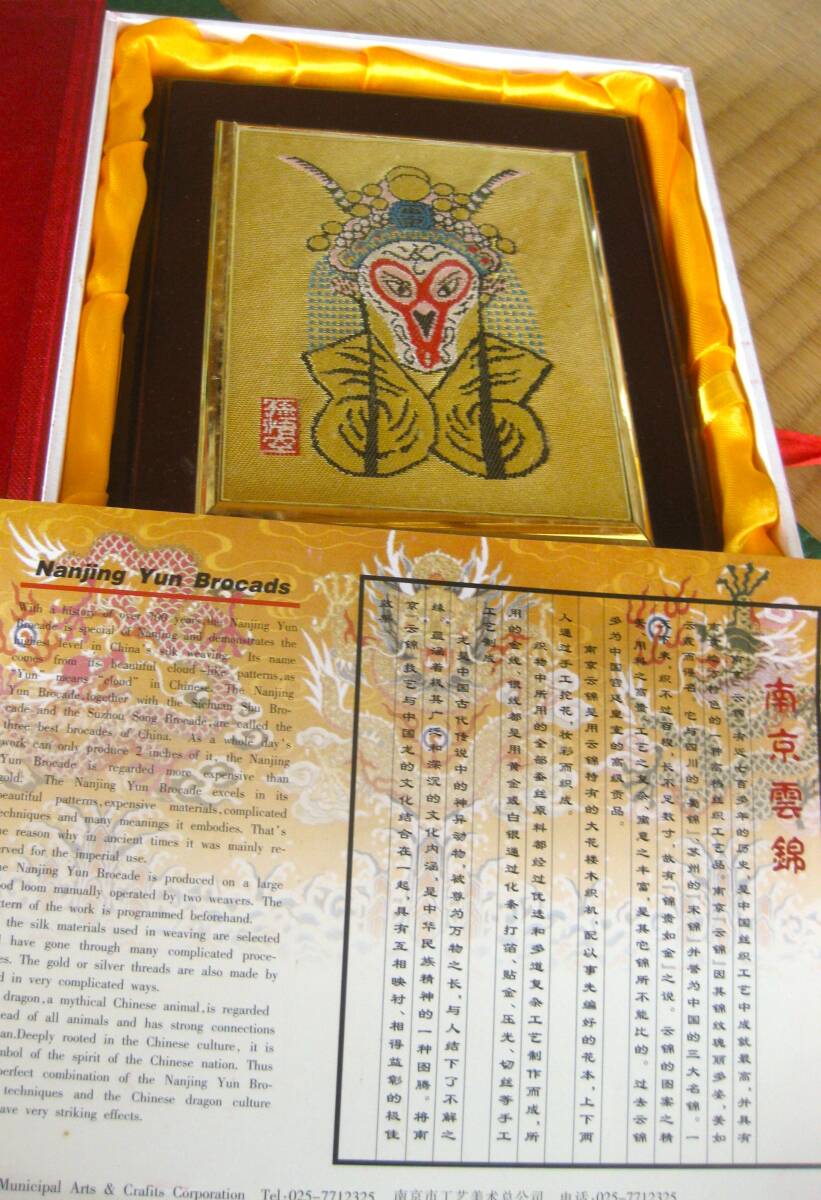 孫悟空
Nanjing Yun Brocads
With a history of over 700 years,the Nanjing Yun
Brocade is special of Nanjing and demonstrates the
highest level in China's silk weaving. Its name
comes from its beautiful cloud-like patterns,as
"Yun" means "cloud" in Chinese. The Nanjing
Yun Brocade,together with the Sichuan Shu Bro-
cade and the Suzhou Song Brocade,are called the
three best brocades of China. As a whole day's
work can only produce 2 inches of it, the Nanjing
Yun Brocade is regarded more expensive than
gold. The Nanjing Yun Brocade excels in its
beautiful patterns,expensive materials,complicated
techniques and many meanings it embodies. That's
the reason why in ancient times it was mainly re-
served for the imperial use.
he Nanjing Yun Brocade is produced on a large
ood loom manually operated by two weavers. The
ttern of the work is programmed beforehand.
the silk materials used in weaving are selected
have gone through many complicated proce-
es. The gold or silver threads are also made by
d in very complicated ways.
dragon,a mythical Chinese animal,is regarded
ead of all animals and has strong connections
an.Deeply rooted in the Chinese culture, it is
mbol of the spirit of the Chinese nation. Thus
perfect combination of the Nanjing Yun Bro-
techniques and the Chinese dragon culture
ave very striking effects.
南京雲錦
南京"云锦"有近七百多年的历史,是中国丝织工艺中成就最高,并具有
南京地方特色的一种高档丝织工艺品。南京"云锦"因其锦纹瑰丽多姿,美如
云霞而得名。它与四川的"蜀锦"、苏州的"宋锦"并誉为中国的三大名锦。一
天下来,织不过百梭,长不足数寸,故有"锦贵如金"之说。云锦的图案之精
美、用料之高贵,工艺之复杂、寓意之丰富,是其它锦所不能比的。过去云锦
多为中国宫廷皇室的高级贡品。
南京云锦是用云锦特有的大花楼木织机,配以事先编好的花本,上下两
人通过手工挖花,妆彩而织成。
织物中所用的全部蚕丝原料都经过优选和多道复杂工艺制作而成,所
用的金线、银线都是用黄金或白银通过化条、打箔、贴金、压光、切丝等手工
工艺制成。
龙是中国古代传说中的神异动物,被尊为万物之长,与人结下了不解之
缘,蕴涵着极其广泛和深沉的文化内涵,是中华民族精神的一种图腾。将南
京云锦技艺与中国龙的文化结合在一起,具有互相映衬、相得益彰的极佳
效果。
Municipal Arts & Crafits Corporation Tel:025-7712325 南京市工艺美术总公司 电话:025-7712325